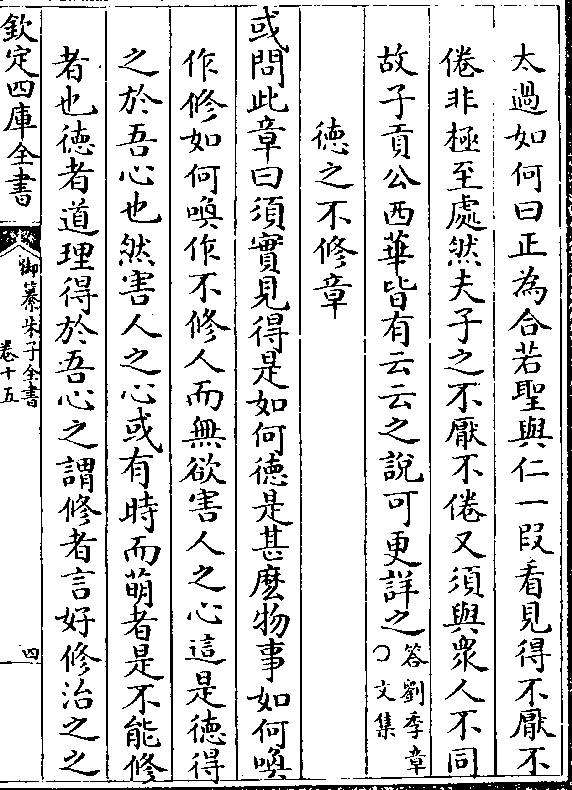 太過如何曰正為合若聖與仁一段看見得不厭不
倦非極至處然夫子之不厭不倦又須與衆人不同
故子貢公西華皆有云云之說可更詳之答劉季章○文集
德之不修章
或問此章曰須實見得是如何德是甚麽物事如何喚
作修如何喚作不修人而無欲害人之心這是德得
之於吾心也然害人之心或有時而萌者是不能修
者也德者道理得於吾心之謂修者言好修治之之
欽定四庫全書
御纂朱子全書
卷十五
四